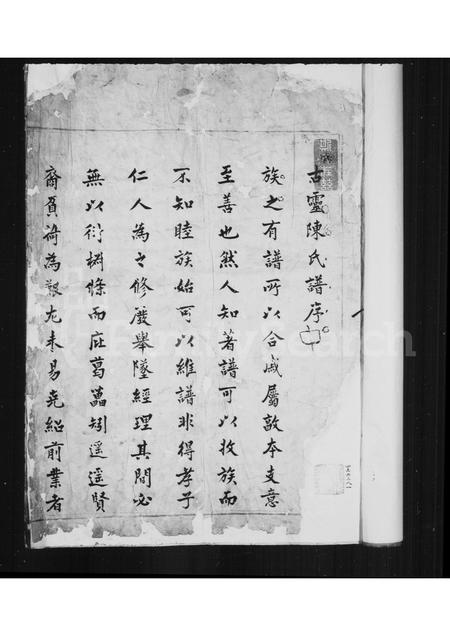 古靈陳氏譜序
族之有譜所以合戚屬敦本支意
至善也然人知著譜可以收族而
不知睦族始可以維譜非得孝子
仁人為之修廢舉墜經理其間必
無以衍椒條而庇葛藟矧遥遥賢
裔負荷為艱尤未易克紹前業者